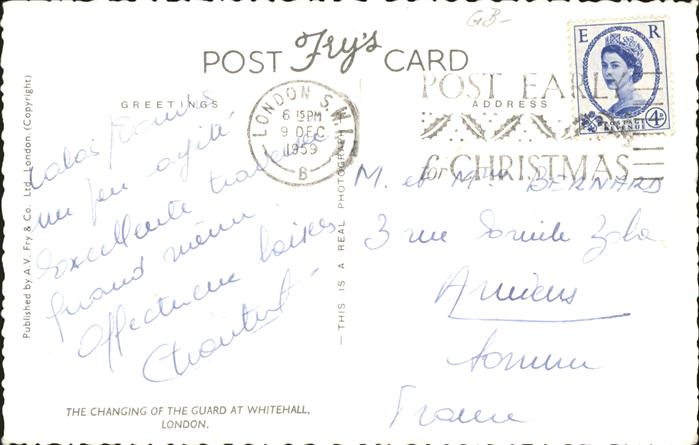 GB-
POST Fry's CARD
E R
POSTAGE REVENUE 4D
POST EARLY
for CHRISTMAS
LONDON S.W.1
6 15 PM
9 DEC
1959
B
GREETINGS
un peu agité.
Excellente
quand même
Affectueux baisers
ADDRESS
M. et Mme BERNARD
3 rue Emile Zola
Amiens
Somme
France
— THIS IS A REAL PHOTOGRAPH
Published by A.V. Fry & Co. Ltd. London. (Copyright)
THE CHANGING OF THE GUARD AT WHITEHALL,
LONDON.